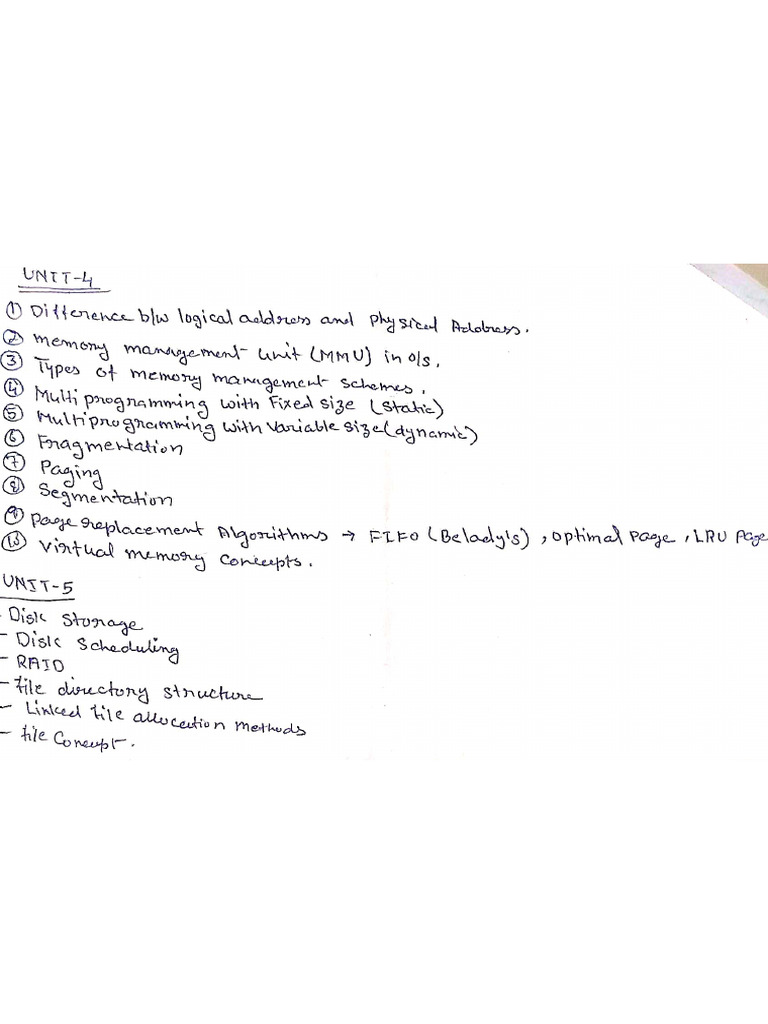 UNIT-4
① Difference b/w logical address and Physical Address.
② Memory management Unit (MMU) in o/s.
③ Types of memory management schemes.
④ Multiprogramming with Fixed size (static)
⑤ Multiprogramming with Variable size (dynamic)
⑥ Fragmentation
⑦ Paging
⑧ Segmentation
⑨ Page replacement Algorithms → FIFO (Belady's), optimal page, LRU page
⑩ Virtual memory concepts.
UNIT-5
- Disk Storage
- Disk Scheduling
- RAID
- file directory structure
- Linked file allocation methods
- file Concept.